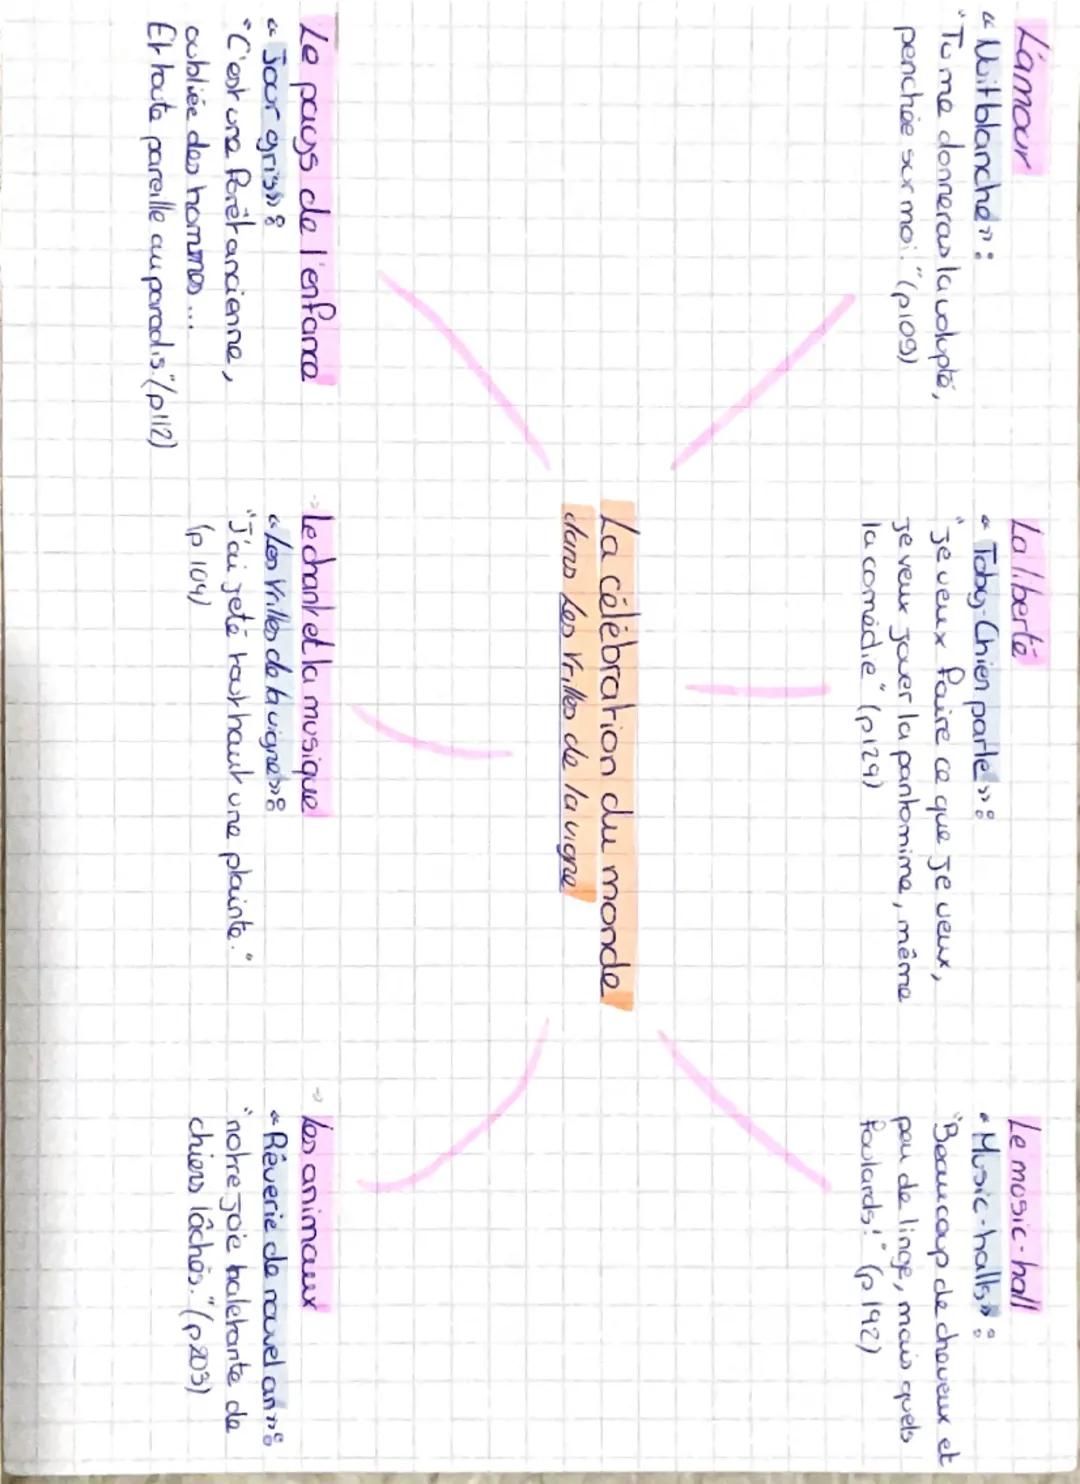 L'amour
« Nuit blanche » :
"Tu me donneras la volupté,
penchée sur moi." (p109)
La liberté
« Toby-Chien parle » :
"je veux faire ce que je veux,
je veux jouer la pantomime, même
la comédie" (p129)
Le music-hall
« Music-halls » :
"Beaucoup de cheveux et
peu de linge, mais quels
foulards!" (p192)
La célébration du monde
dans Les Vrilles de la vigne
Le pays de l'enfance
« Jour gris » :
"C'est une forêt ancienne,
oubliée des hommes...
Et toute pareille au paradis." (p112)
→ Le chant et la musique
« Les Vrilles de la vigne » :
"J'ai jeté tout haut une plainte."
(p104)
→ Les animaux
« Rêverie de nouvel an » :
"notre joie haletante de
chiens lâchés." (p203)